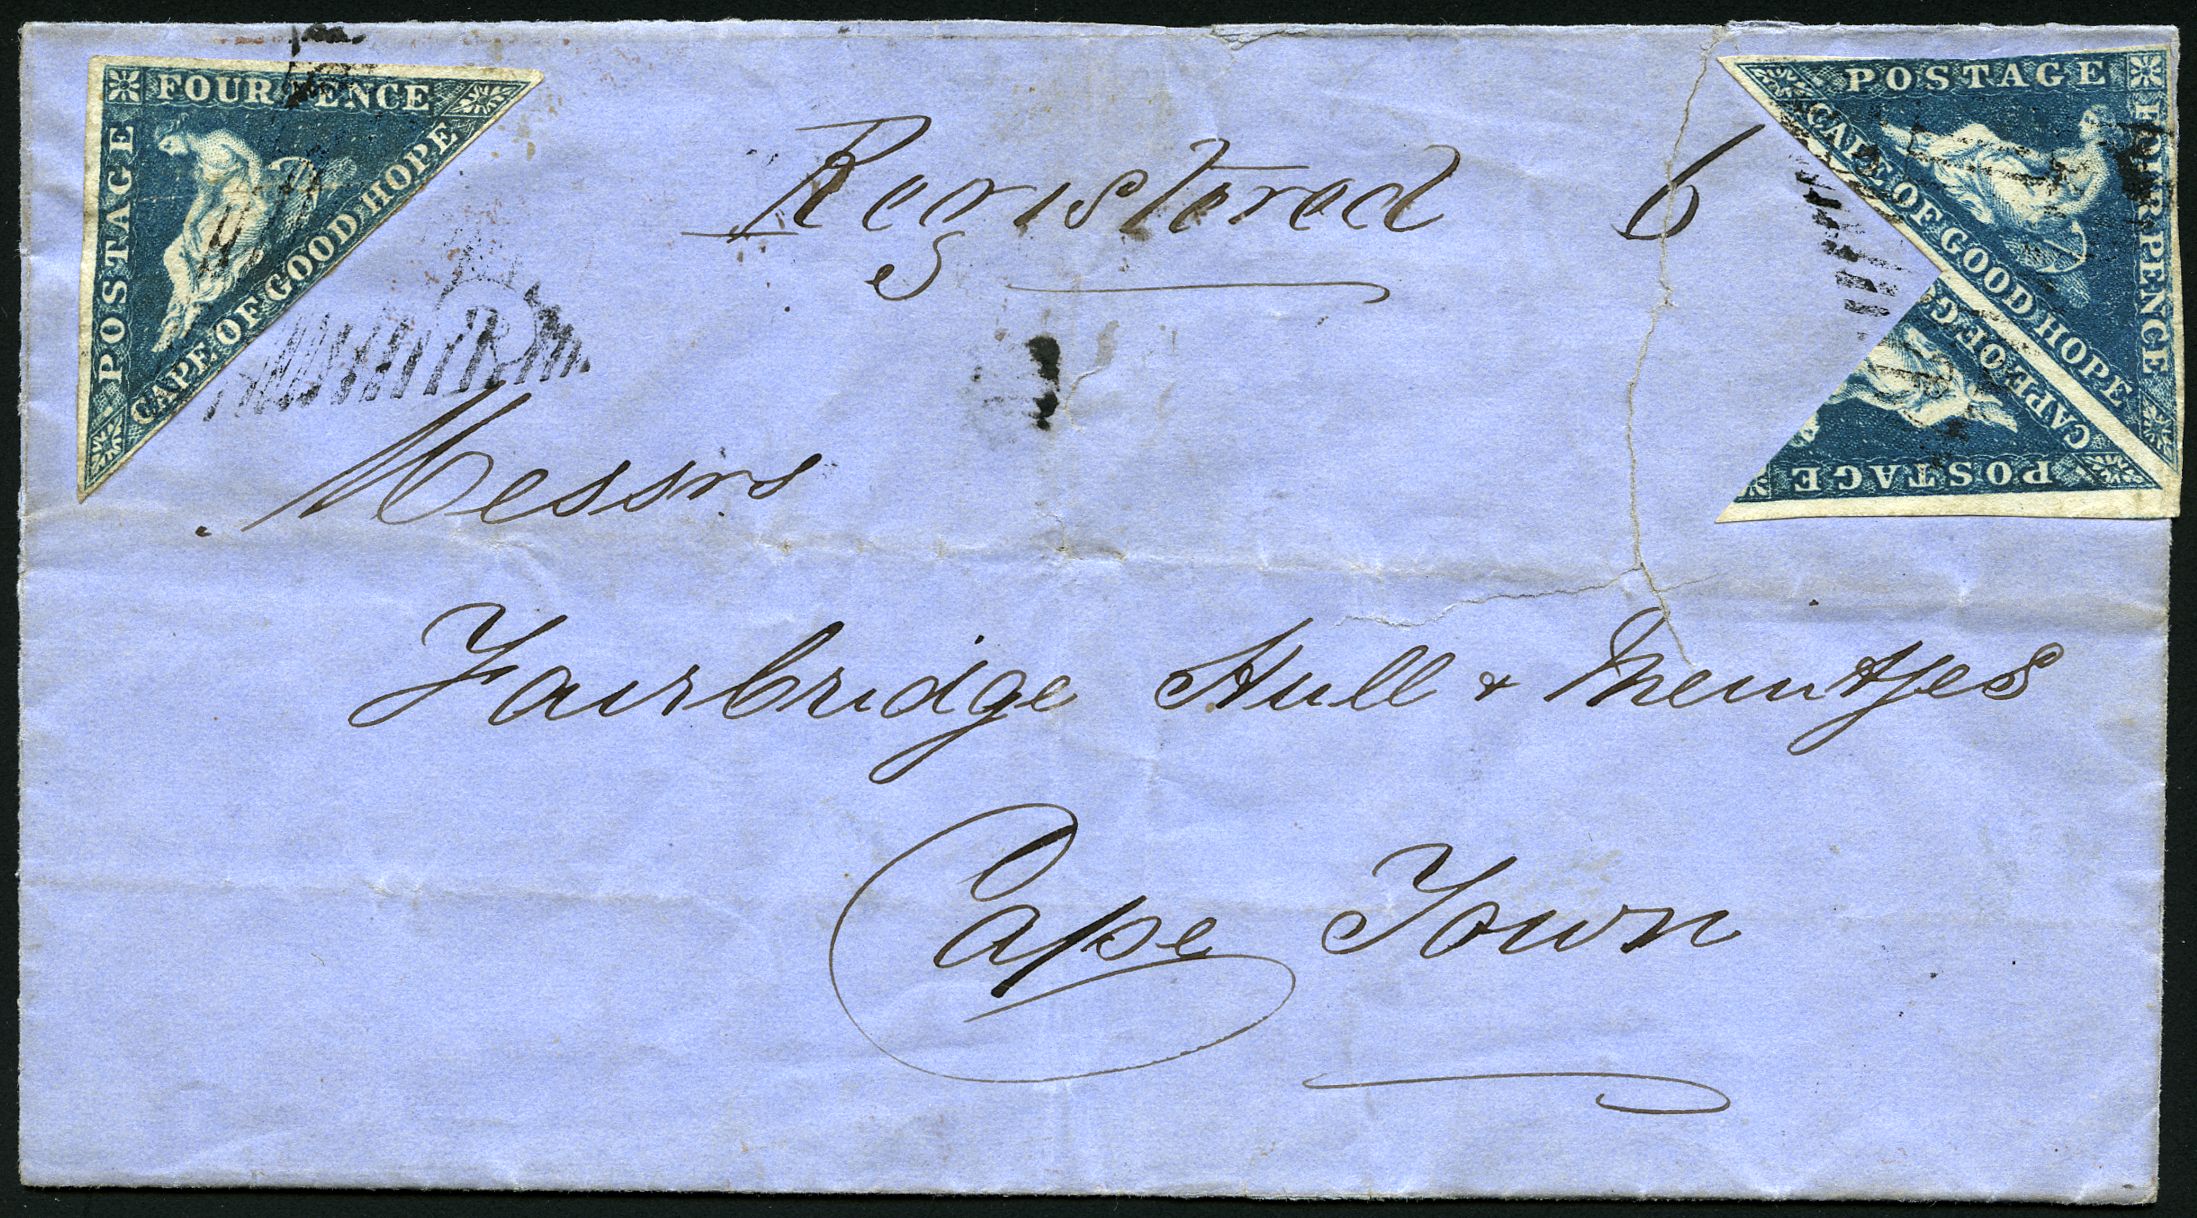 FOUR PENCE
POSTAGE
CAPE OF GOOD HOPE
POSTAGE
FOUR PENCE
CAPE OF GOOD HOPE
CAPE OF G
POSTAGE
Registered 6
Messrs
Fairbridge Hull & Meintjes
Cape Town